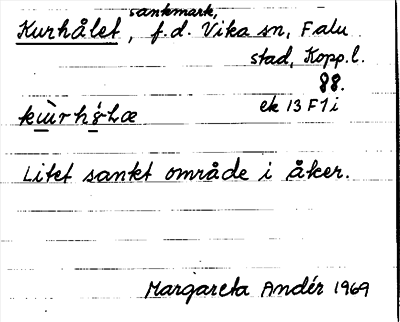 sankmark,
Kurhålet, f.d. Vika sn, Falu
stad, Kopp.l.
88.
ek 13 F1i
Litet sankt område i åker.
Margareta Andér 1969